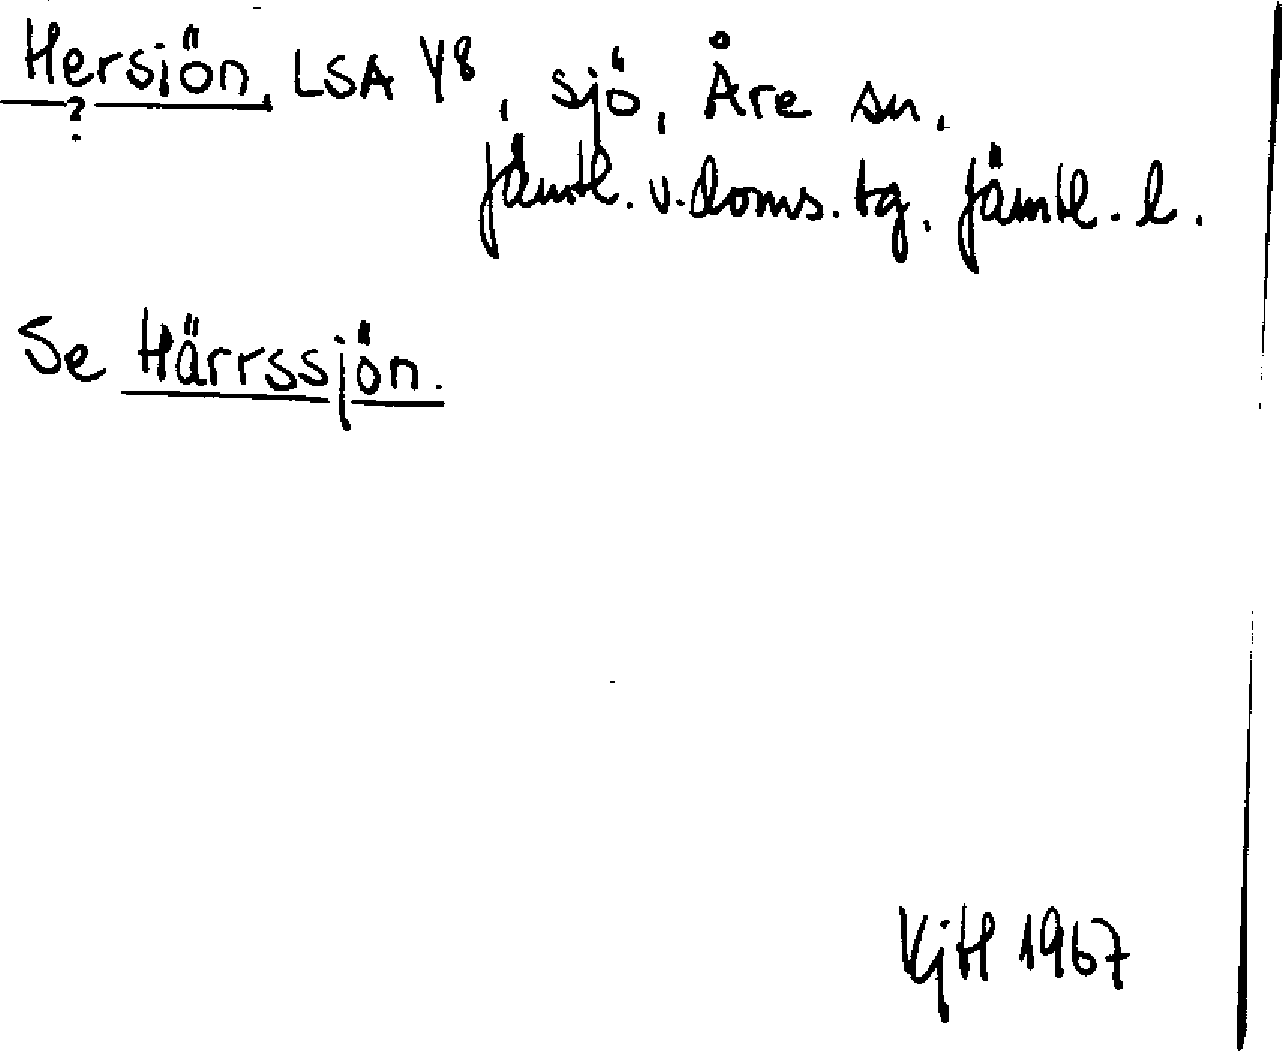 Hersiön, LSA Y8, sjö, Åre sn.
?
jämtl. v. doms. tg. jämtl. l.
Se Härrssjön.
VjH 1967